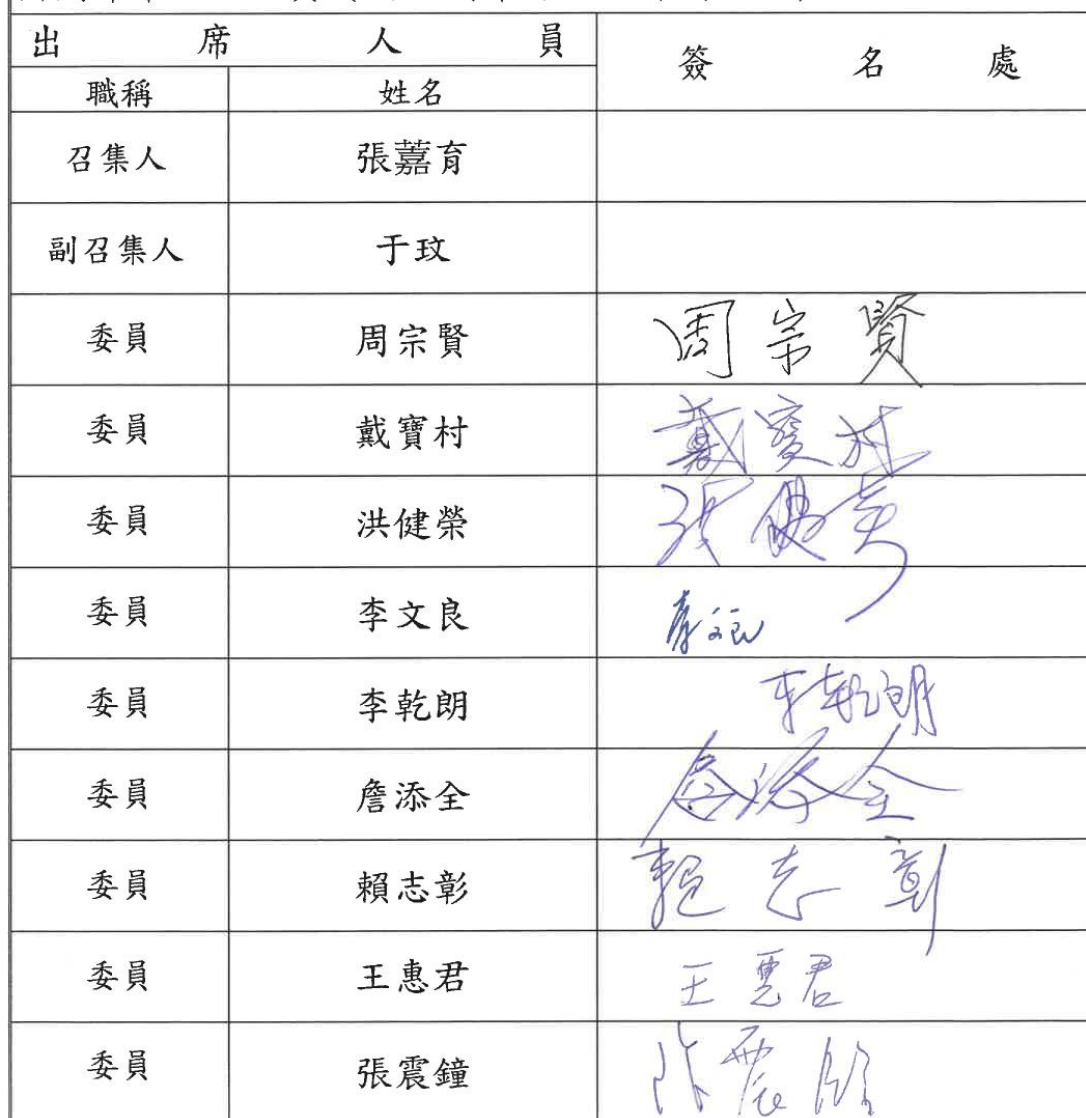 出席人員 簽名處
職稱 姓名
召集人 張嘉育
副召集人 于玟
委員 周宗賢 周宗賢
委員 戴寶村 戴寶村
委員 洪健榮 洪健榮
委員 李文良 李文良
委員 李乾朗 李乾朗
委員 詹添全 詹添全
委員 賴志彰 賴志彰
委員 王惠君 王惠君
委員 張震鐘 張震鐘